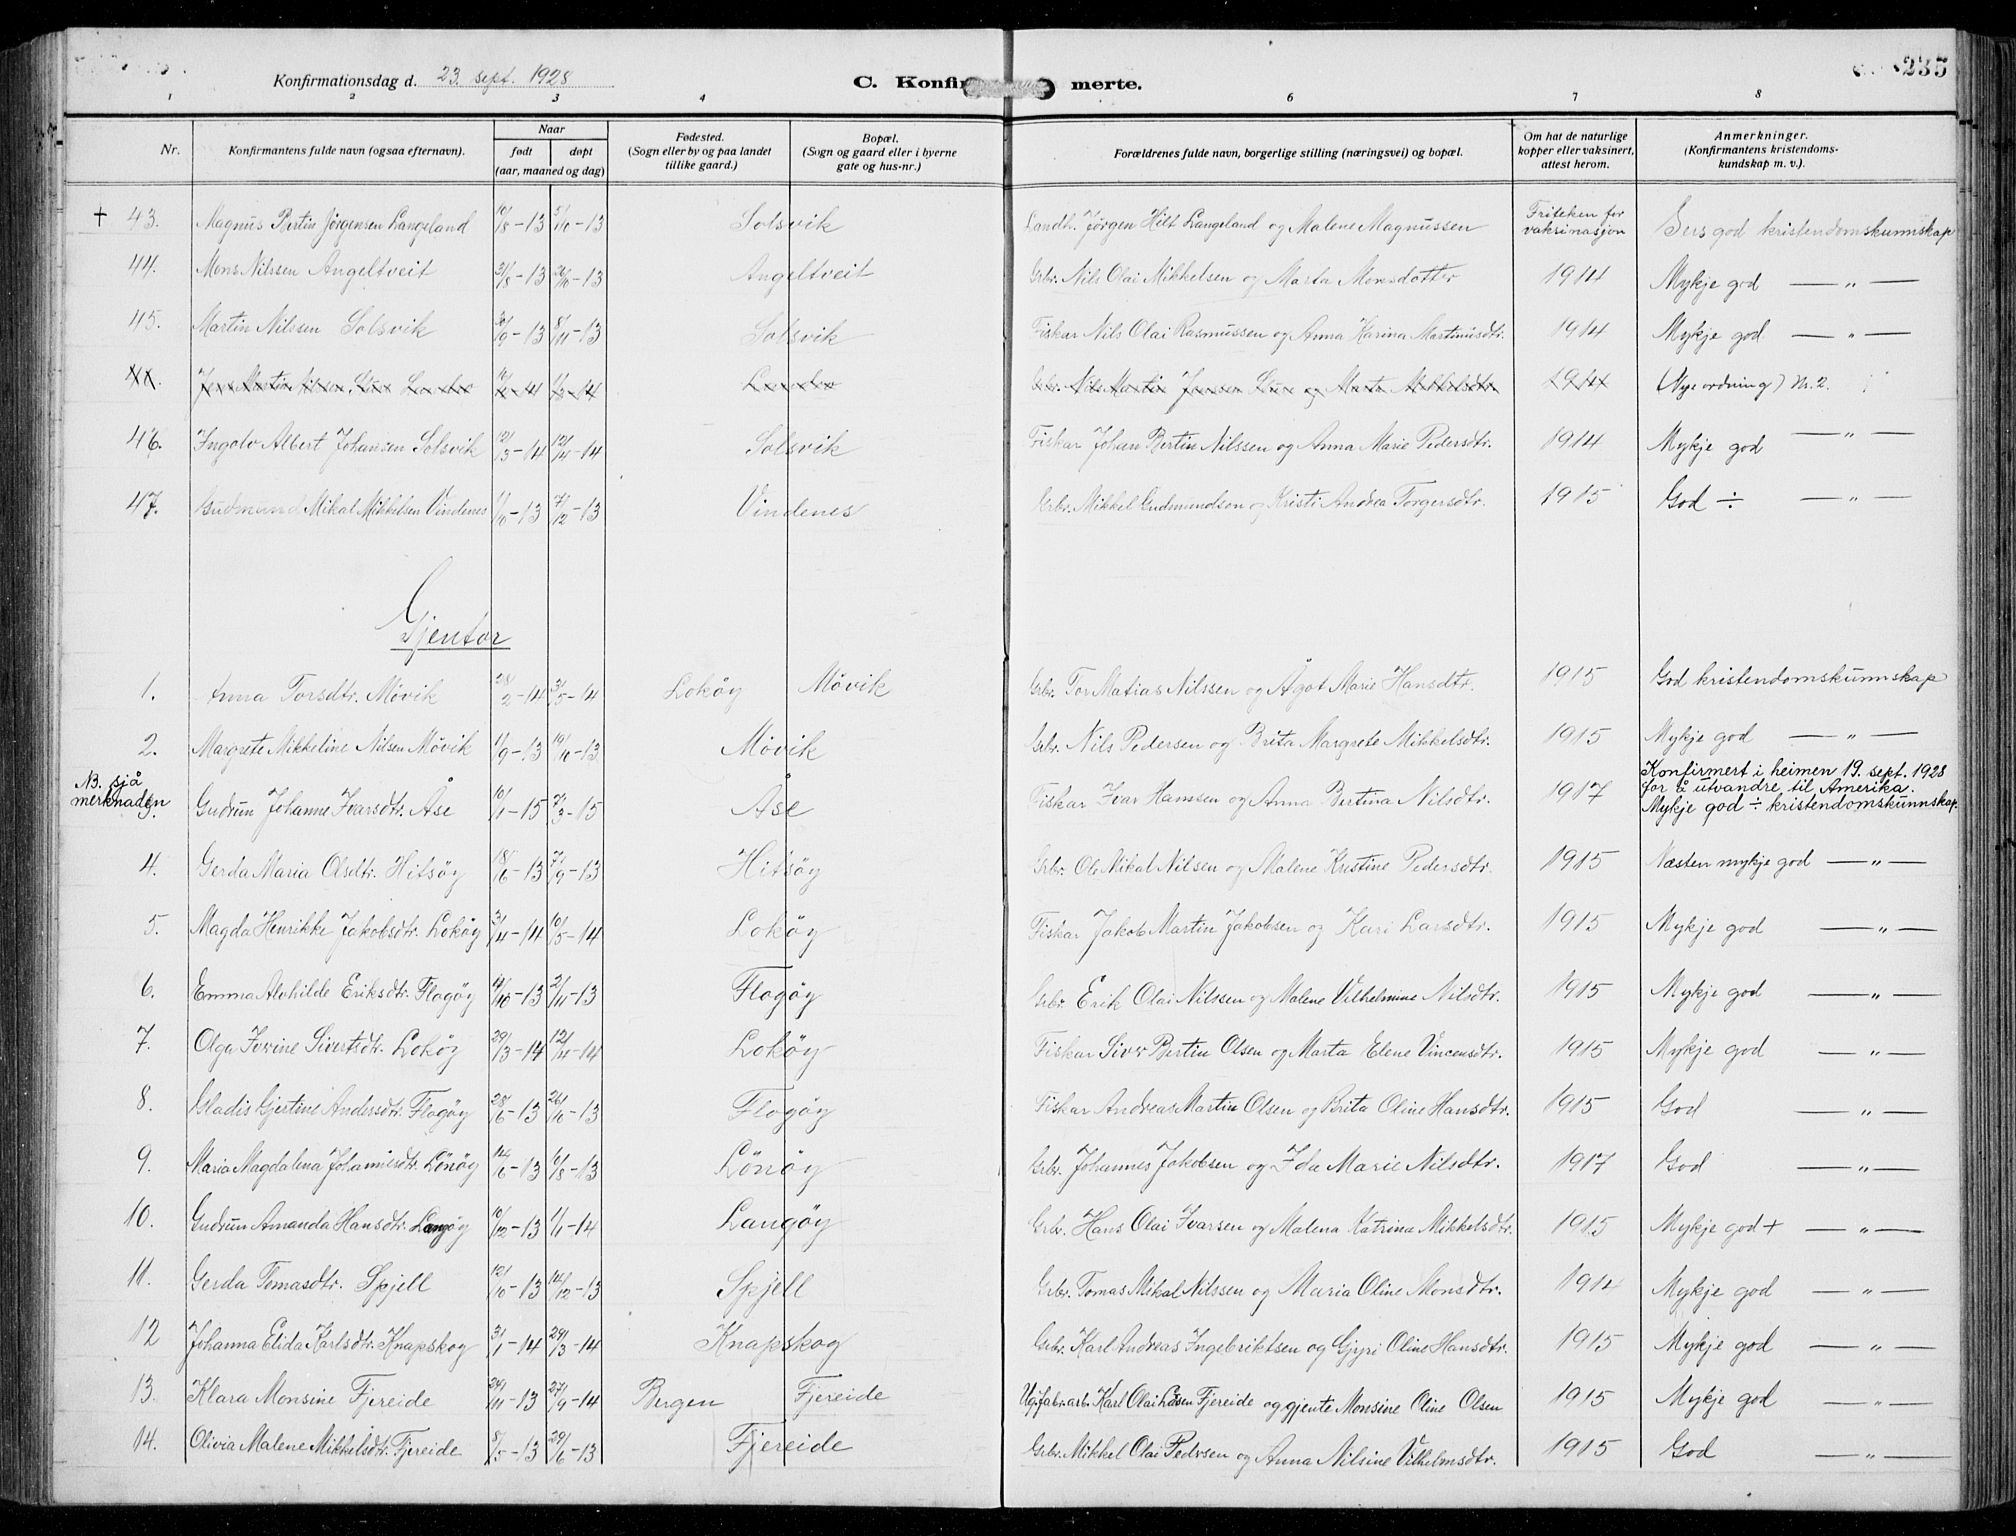 Konfirmationsdag d. 23. sept. 1928
C. Konfir merte.
235
1 2 3 4 6 7 8
Nr.
Konfirmantens fulde navn (ogsaa efternavn).
Naar
født døpt
(aar, maaned og dag)
Fødested.
(Sogn eller by og paa landet
tillike gaard.)
Bopæl.
(Sogn og gaard eller i byerne
gate og hus-nr.)
Forældrenes fulde navn, borgerlige stilling (næringsvei) og bopæl.
Om hat de naturlige
kopper eller vaksinert,
attest herom.
Anmerkninger.
(Konfirmantens kristendoms-
kundskap m. v.)
+ 43. Magnus Bertin Jørgensen Langeland 10/8-13 5/10-13 Solsvik Landh. Jørgen Hilt Langeland og Malene Magnussen Friteken for vaksinasjon Sers god kristendomskunnskap
44. Mons Nilssen Angeltveit 31/8-13 26/10-13 Angeltveit Grbr. Nils Olai Mikkelsen og Marta Monsdotter 1914 Mykje god — „ —
45. Martin Nilssen Solsvik /9-13 8/11-13 Solsvik Fiskar Nils Olai Rasmussen og Anna Karina Martinusdtr. 1914 Mykje god — „ —
Martin Nilsen -14 -14 Grbr. Nils Martin Jensen Sture og Marta Mikkelsdtr. 1914 (Nye ordning) Nr. 2.
46. Ingolv Albert Johansen Solsvik 12/3-14 12/4-14 Solsvik Fiskar Johan Bertin Nilssen og Anna Marie Pedersdtr. 1914 Mykje god — „ —
47. Gudmund Mikal Mikkelsen Vindenes 1/10-13 7/12-13 Vindenes Grbr. Mikkel Gudmundson og Kristi Andrea Torgersdtr. 1915 God ÷ — „ —
Gjentor
1. Anna Torsdtr. Møvik 28/2-14 31/5-14 Lokøy Møvik Grbr. Tor Matias Nilssen og Ågot Marie Hansdtr. 1915 God kristendomskunnskap
2. Margrete Mikkeline Nilsen Møvik 11/9-13 19/10-13 Møvik Grbr. Nils Pedersen og Brita Margrete Mikkelsdtr. 1915 Mykje god — „ —
NB. sjå
merknaden
3. Gudrun Johanne Ivarsdtr. Åse 10/1-15 7/3-15 Åse Fiskar Ivar Hansen og Anna Bertina Nilsdtr. 1917 Konfirmert i heimen 19. sept. 1928
for å utvandre til Amerika.
Mykje god ÷ kristendomskunnskap.
4. Gerda Maria Olsdtr. Hitsøy 18/6-13 7/9-13 Hitsøy Grbr. Ole Mikal Nilsen og Malene Kristine Pedersdtr. 1915 Næsten mykje god — „ —
5. Magda Henrikke Jakobsdtr. Lokøy 3/4-14 10/5-14 Lokøy Fiskar Jakob Martin Jakobsen og Kari Larsdtr. 1915 Mykje god — „ —
6. Emma Alvhilde Eriksdtr. Flogøy 4/10-13 2/11-13 Flogøy Grbr. Erik Olai Nilssen og Malene Vilhelmine Nilsdtr. 1915 Mykje god — „ —
7. Olga Ivrine Sivertsdtr. Lokøy 29/3-14 12/4-14 Lokøy Fiskar Siver Bertin Olsen og Marta Elene Vincensdtr. 1915 Mykje god — „ —
8. Gladis Gjertine Andersdtr. Flogøy 28/6-13 26/10-13 Flogøy Fiskar Andreas Martin Olsen og Brita Oline Hansdtr. 1915 God — „ —
9. Maria Magdalena Johannesdtr. Lønøy 14/6-13 6/8-13 Lønøy Grbr. Johannes Jakobsen og Ida Marie Nilsdtr. 1917 God — „ —
10. Gudrun Amanda Hansdtr. Langøy 10/12-13 1/1-14 Langøy Grbr. Hans Olai Ivarsen og Malena Katrina Mikkelsdtr. 1915 Mykje god + — „ —
11. Gerda Tomasdtr. Spjell 12/10-13 14/12-13 Spjell Grbr. Tomas Mikal Nilssen og Maria Oline Monsdtr. 1914 Mykje god — „ —
12 Johanna Elida Karlsdtr. Knapskog 3/1-14 29/3-14 Knapskog Grbr. Karl Andreas Ingebriktsen og Gjyri Oline Hansdtr. 1915 Mykje god — „ —
13. Klara Monsine Fjereide 24/11-13 27/9-14 Bergen Fjereide Ug. fabr.arb. Karl Olai Olsen Fjereide og gjente Monsine Oline Olsen 1915 Mykje god — „ —
14. Olivia Malene Mikkelsdtr. Fjereide 8/5-13 29/6-13 Fjereide Grbr. Mikkel Olai Pedersen og Anna Nilsine Vilhelmsdtr. 1915 God — „ —